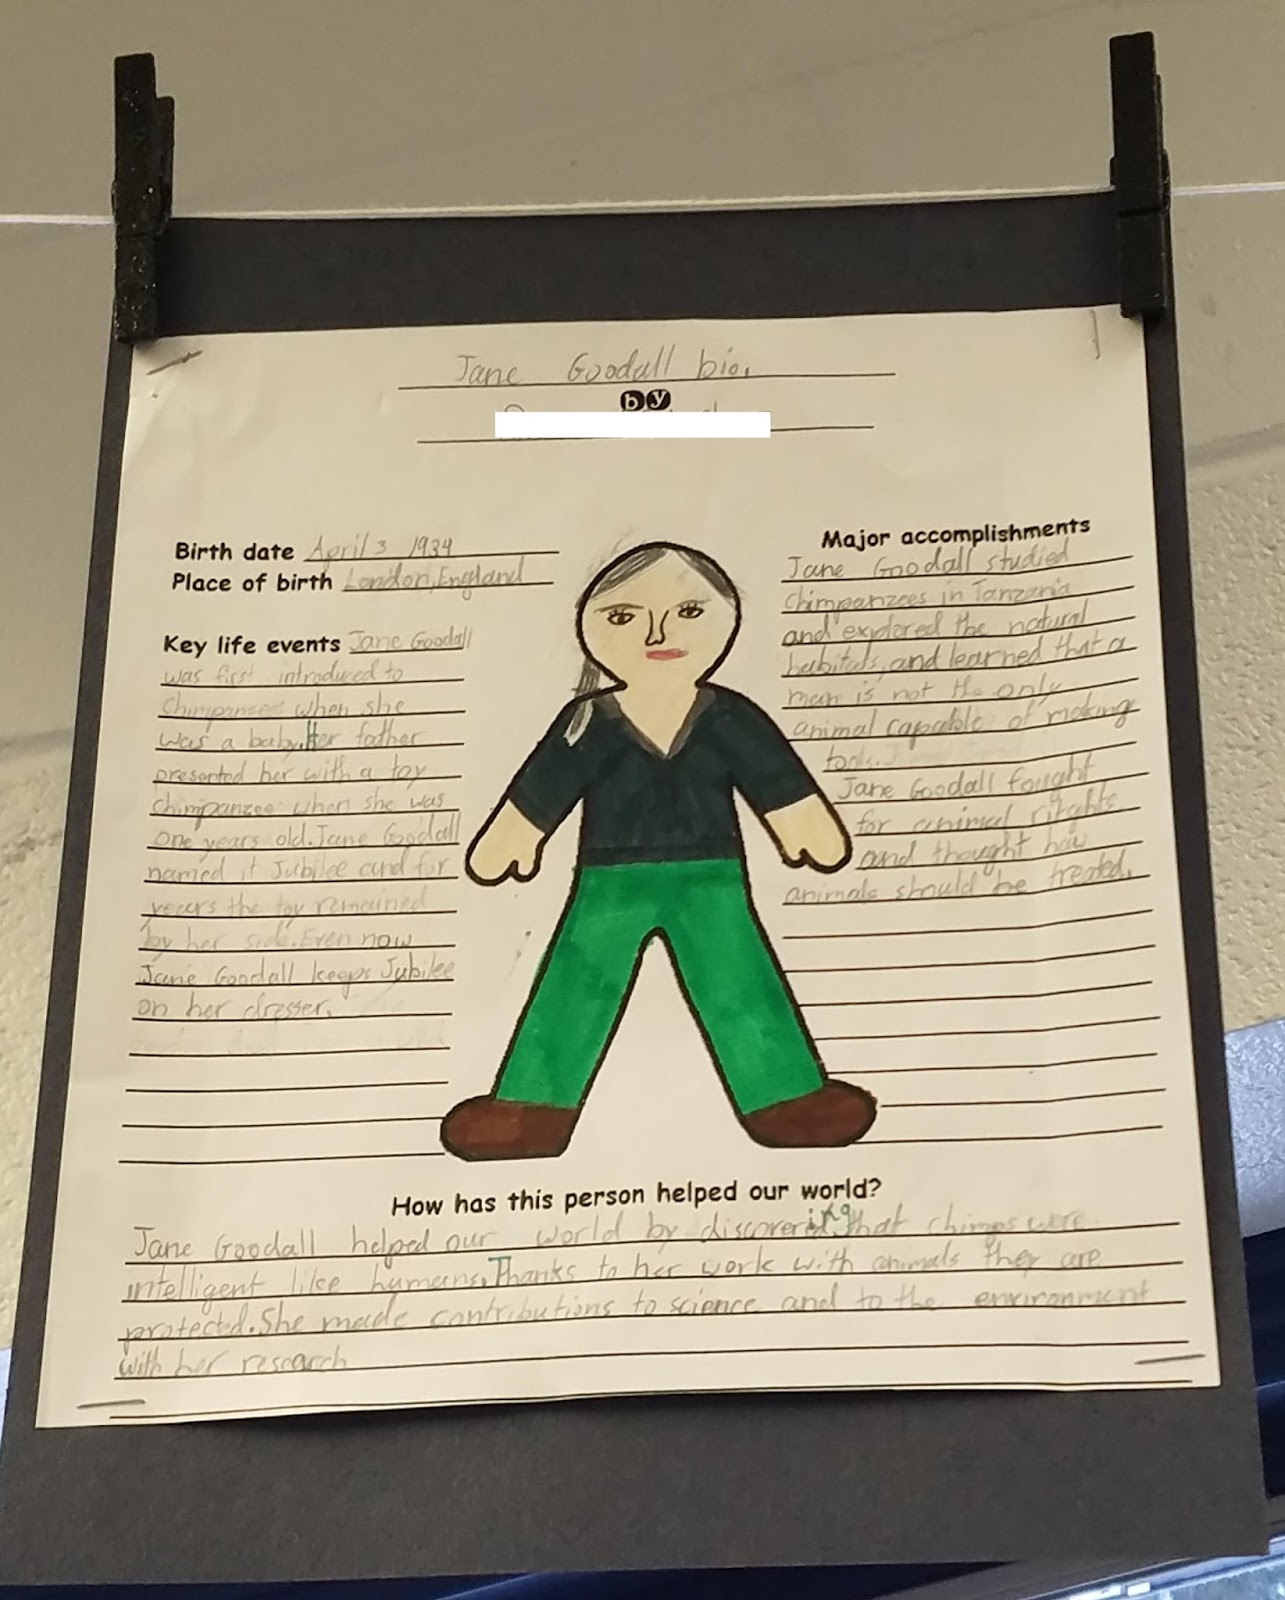 Jane Goodall bio.
by
Birth date April 3 1934
Place of birth London, England
Key life events Jane Goodall
was first introduced to
chimpanzees when she
was a baby. Her father
presented her with a toy
chimpanzee when she was
one years old. Jane Goodall
named it Jubilee and for
years the toy remained
by her side. Even now
Jane Goodall keeps Jubilee
on her dresser.
Major accomplishments
Jane Goodall studied
chimpanzees in Tanzania
and explored the natural
habitats, and learned that a
man is not the only
animal capable of making
tools.
Jane Goodall fought
for animal rights
and thought how
animals should be treated.
How has this person helped our world?
Jane Goodall helped our world by discovering that chimps were
intelligent like humans. Thanks to her work with animals they are
protected. She made contributions to science and to the environment
with her research